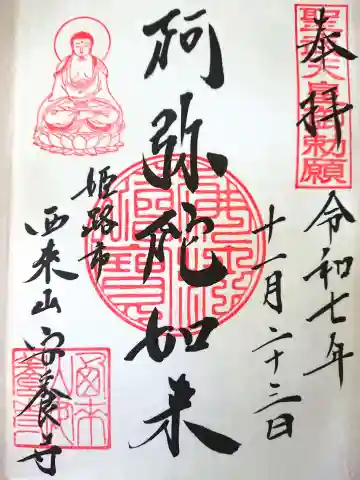 奉拝
聖武天皇勅願
令和七年
十一月二十三日
阿弥陀如来
姫路市
西来山安養寺